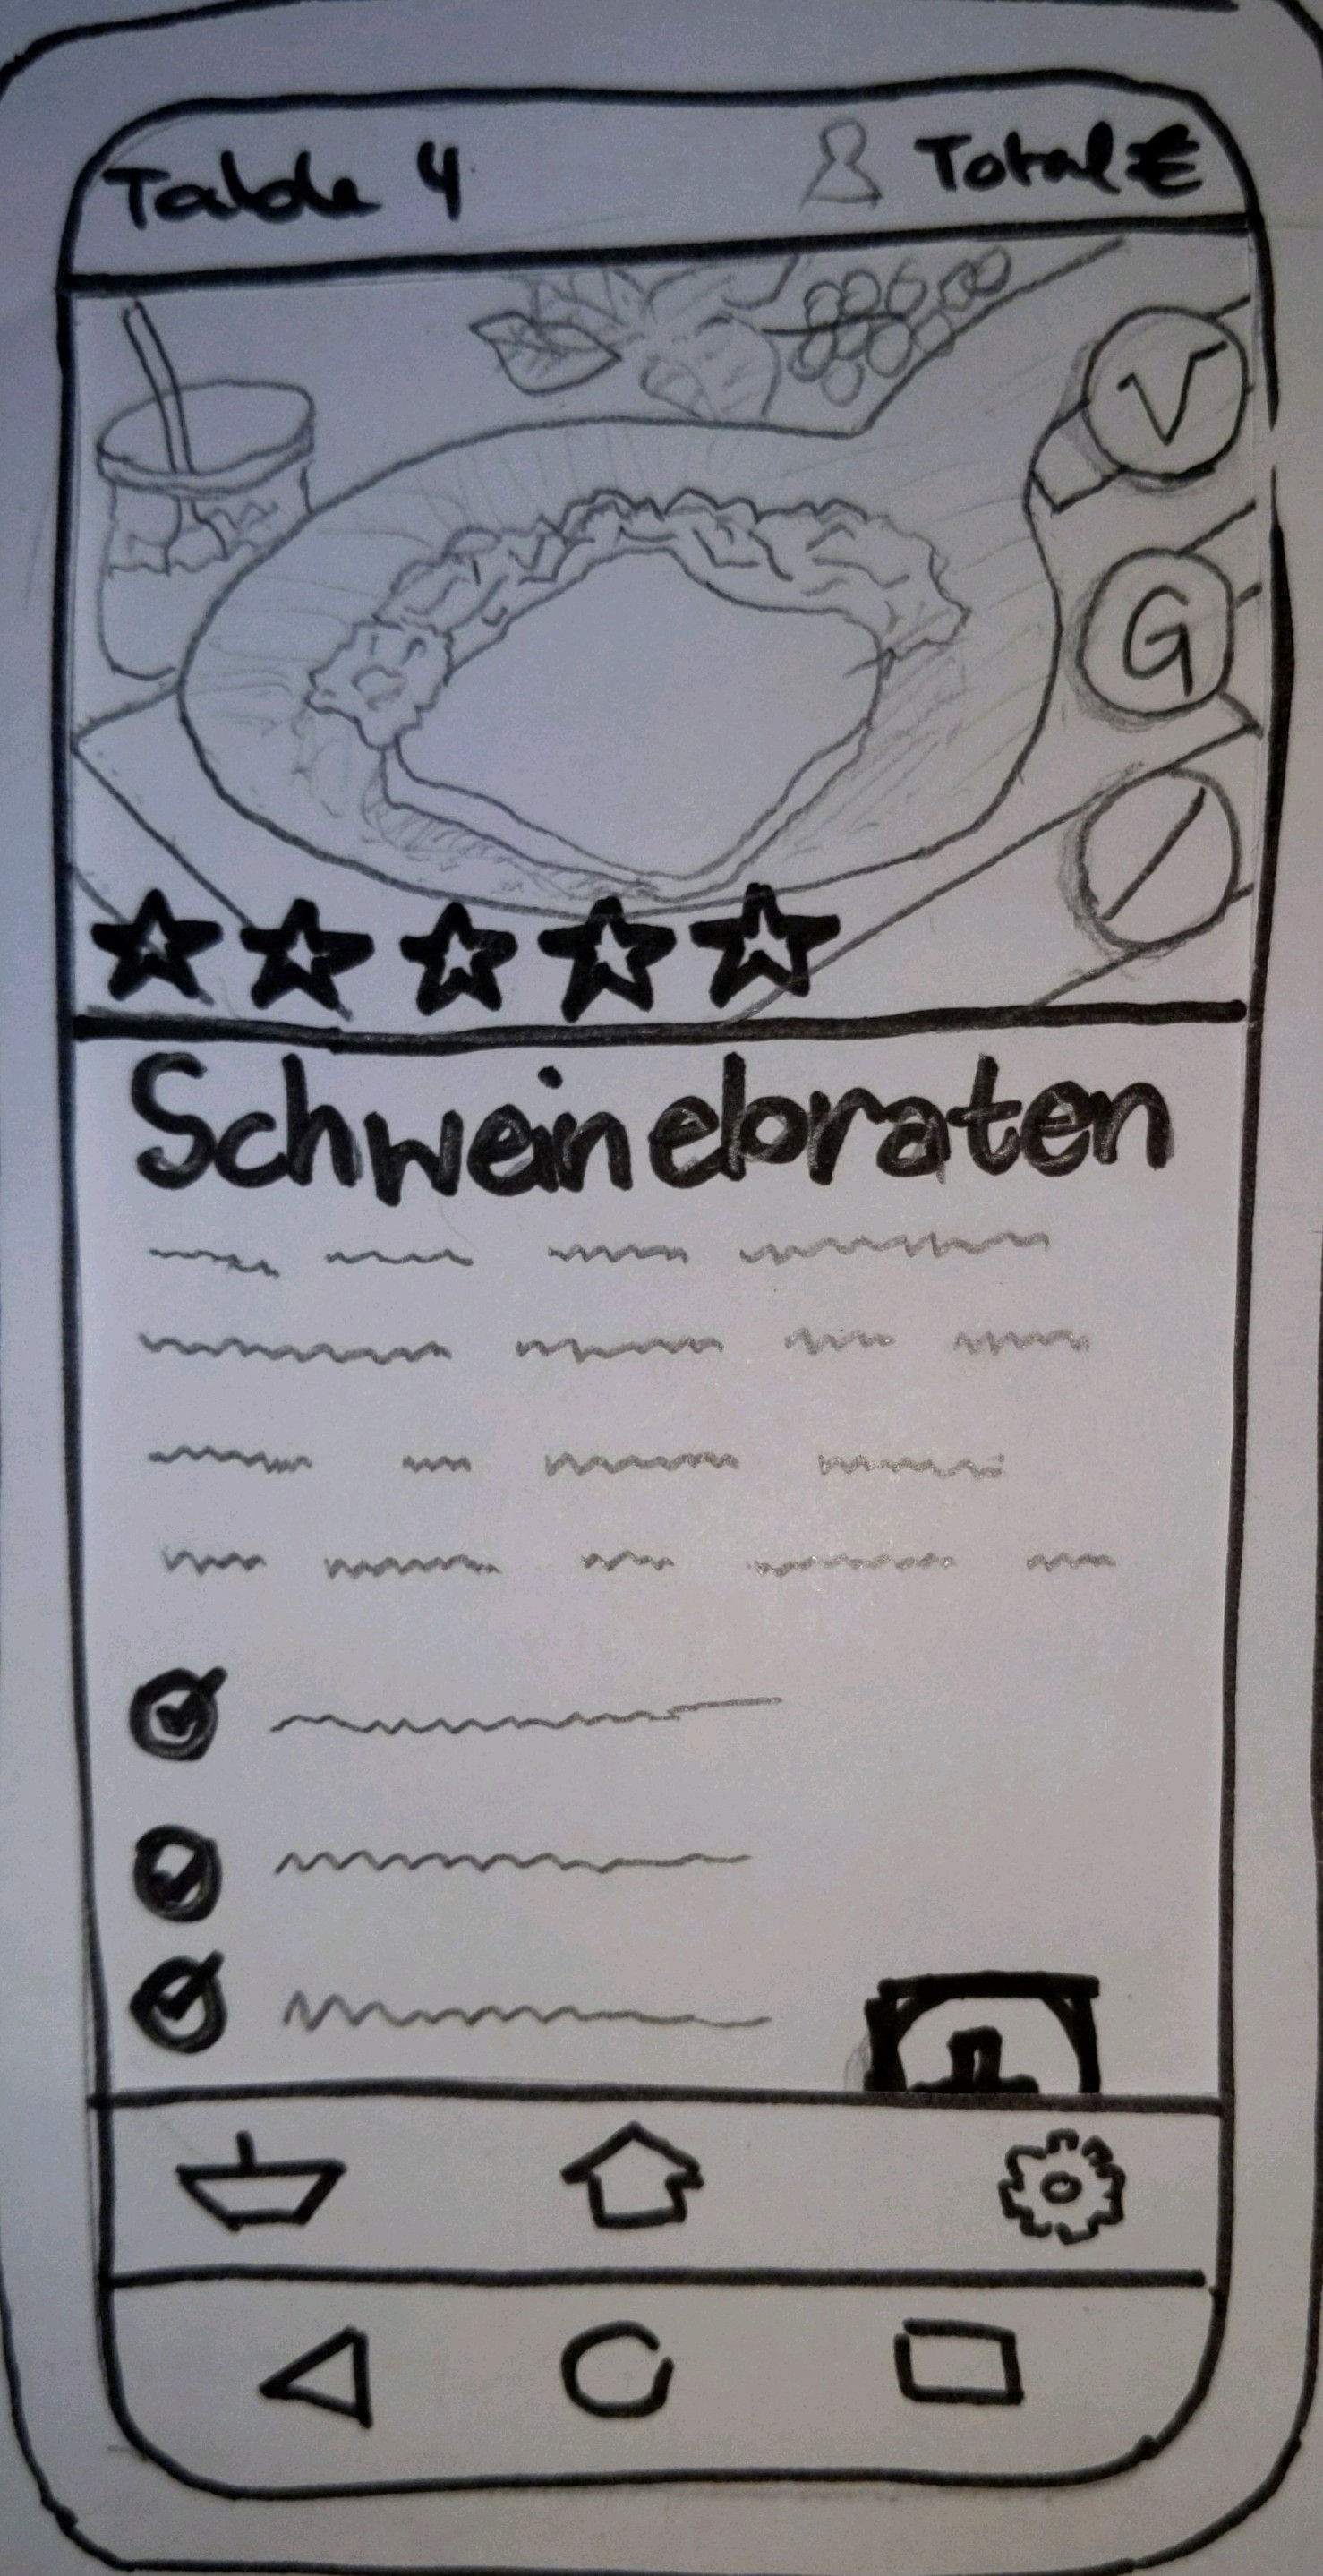 Table 4 Total €
V
G
Schweinebraten